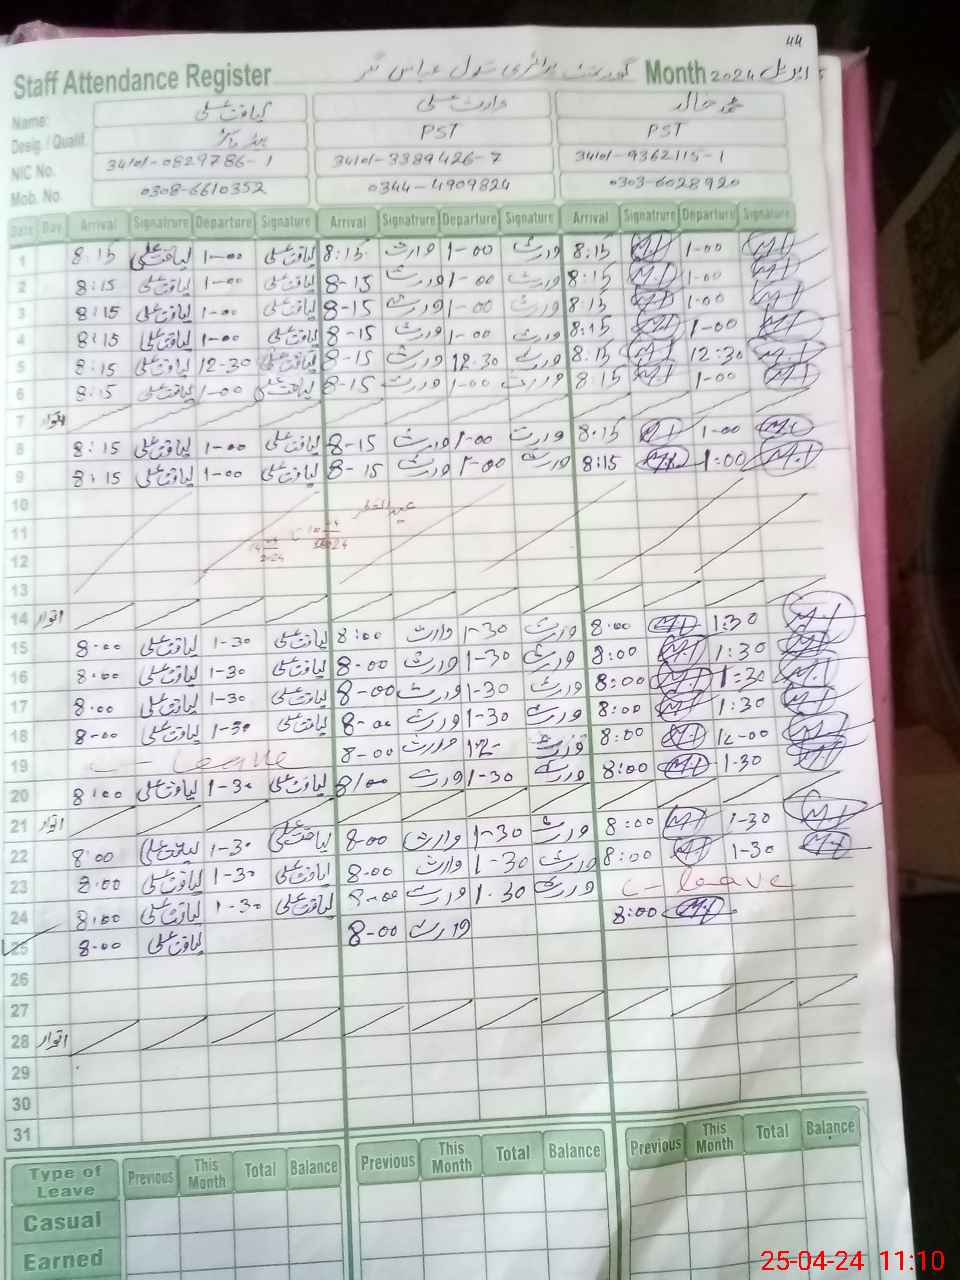 44
Staff Attendance Register گورنمنٹ پرائمری سکول عباس نگر Month اپریل 2024
Name: لیاقت علی وارث علی محمد خالد
Desig. / Qualif. PST PST
NIC No. 34101-0829786-1 34101-3389426-7 34101-9362115-1
Mob. No. 0308-6610352 0344-4909824 0303-6028920
Date Day Arrival Signatrure Departure Signature Arrival Signatrure Departure Signature Arrival Signatrure Departure Signature
1 8:15 لیاقت علی 1-00 لیاقت علی 8:15 وارث 1-00 وارث 8:15 M.I 1-00 M.I
2 8:15 لیاقت علی 1-00 لیاقت علی 8-15 وارث 1-00 وارث 8:15 M.I 1-00 M.I
3 8:15 لیاقت علی 1-00 لیاقت علی 8-15 وارث 1-00 وارث 8:15 M.I 1-00 M.I
4 8:15 لیاقت علی 1-00 لیاقت علی 8-15 وارث 1-00 وارث 8:15 M.I 1-00 M.I
5 8:15 لیاقت علی 12-30 لیاقت علی 8-15 وارث 12-30 وارث 8:15 M.I 12:30 M.I
6 8:15 لیاقت علی 1-00 لیاقت علی 8-15 وارث 1-00 وارث 8:15 M.I 1-00 M.I
7 اتوار
8 8:15 لیاقت علی 1-00 لیاقت علی 8-15 وارث 1-00 وارث 8:15 M.I 1-00 M.I
9 8:15 لیاقت علی 1-00 لیاقت علی 8-15 وارث 1-00 وارث 8:15 M.I 1:00 M.I
10 عید الفطر
11
12
13
14 اتوار
15 8-00 لیاقت علی 1-30 لیاقت علی 8:00 وارث 1-30 وارث 8:00 M.I 1:30 M.I
16 8:00 لیاقت علی 1-30 لیاقت علی 8-00 وارث 1-30 وارث 8:00 M.I 1:30 M.I
17 8:00 لیاقت علی 1-30 لیاقت علی 8-00 وارث 1-30 وارث 8:00 M.I 1:30 M.I
18 8-00 لیاقت علی 1-30 لیاقت علی 8-00 وارث 1-30 وارث 8:00 M.I 1:30 M.I
19 C-leave 8-00 وارث 12- وارث 8:00 M.I 12-00 M.I
20 8:00 لیاقت علی 1-30 لیاقت علی 8:00 وارث 1-30 وارث 8:00 M.I 1-30 M.I
21 اتوار
22 8:00 لیاقت علی 1-30 لیاقت علی 8-00 وارث 1-30 وارث 8:00 M.I 1-30 M.I
23 8:00 لیاقت علی 1-30 لیاقت علی 8-00 وارث 1-30 وارث 8:00 M.I 1-30 M.I
24 8:00 لیاقت علی 1-30 لیاقت علی 8-00 وارث 1-30 وارث C-leave
25 8-00 لیاقت علی 8-00 وارث 8:00 M.I
26
27
28 اتوار
29
30
31
Type of Leave Previous This Month Total Balance Previous This Month Total Balance Previous This Month Total Balance
Casual
Earned
25-04-24 11:10